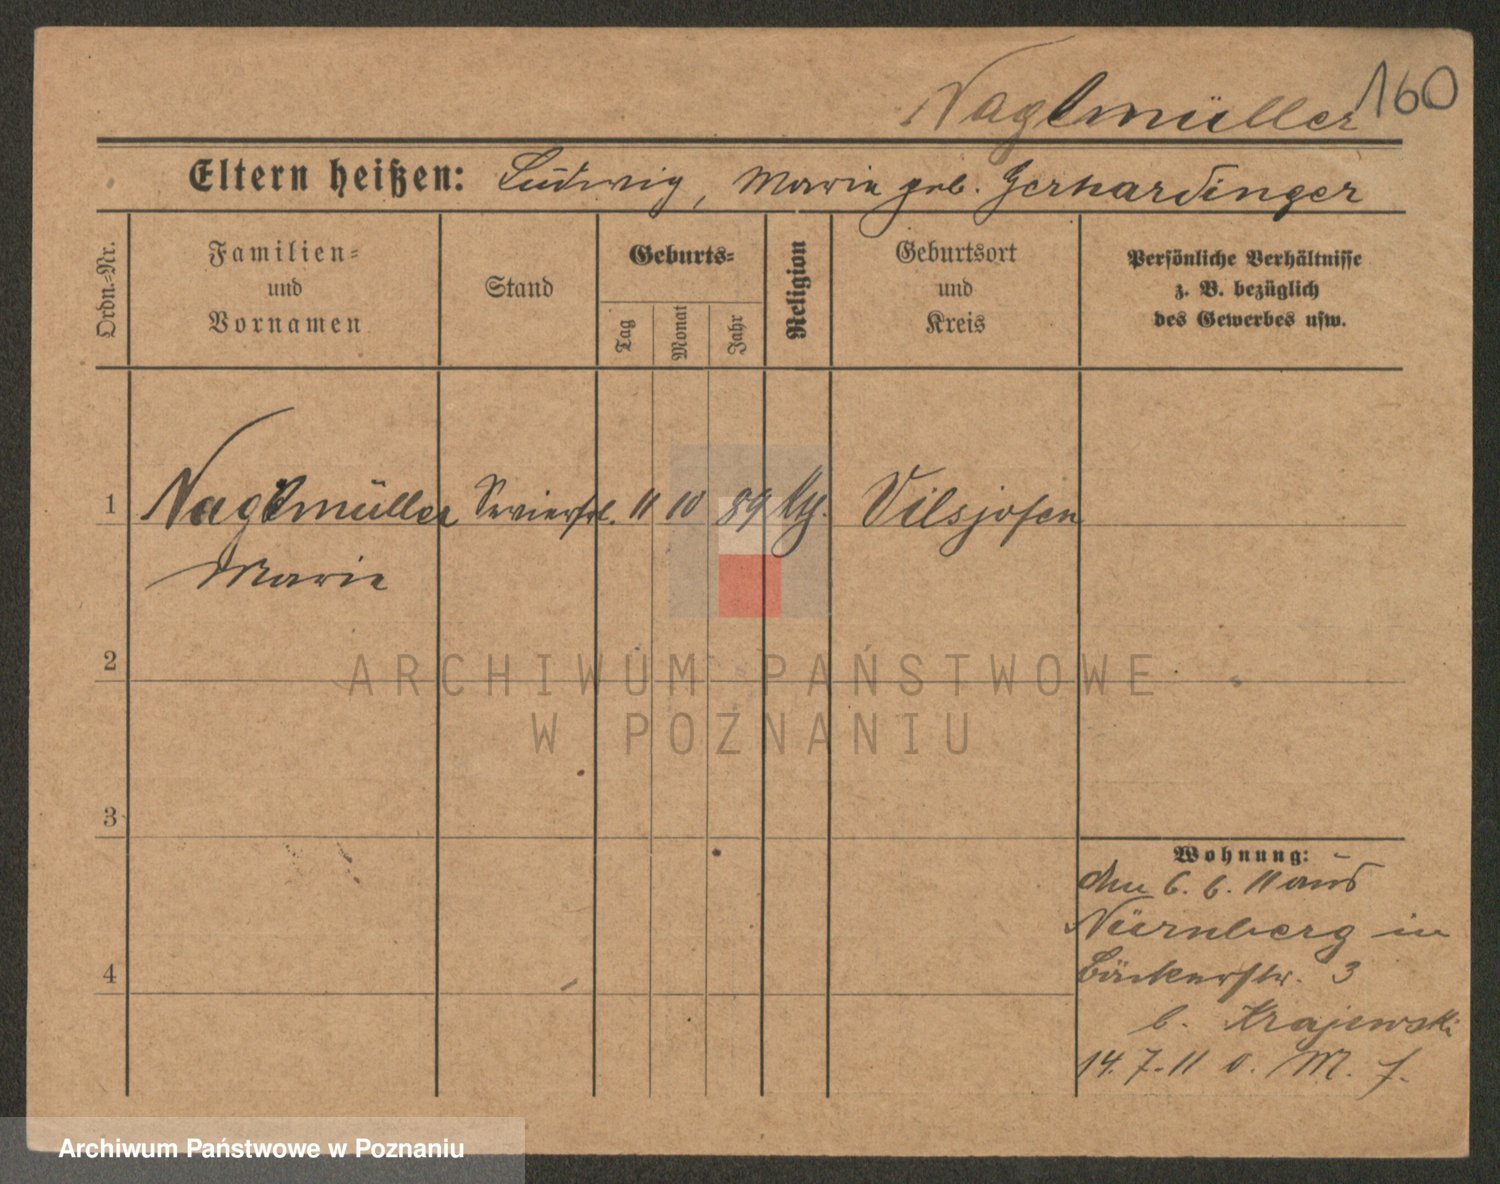 160
Naglmüller
Eltern heißen: Ludwig, Marie geb. Gerhardinger
Ordn.-Nr.
Familien-
und
Vornamen
Stand
Geburts-
Tag
Monat
Jahr
Religion
Geburtsort
und
Kreis
Persönliche Verhältnisse
z. B. bezüglich
des Gewerbes usw.
1 Naglmüller Servierfrl. 11 10 89 kth. Vilshofen
Marie
2
3
4
Wohnung:
den 6. 6. 11 aus
Nürnberg in
Bäckerstr. 3
b. Krajewski
14. 7. 11 o. M. f.
ARCHIWUM PAŃSTWOWE
W POZNANIU
Archiwum Państwowe w Poznaniu